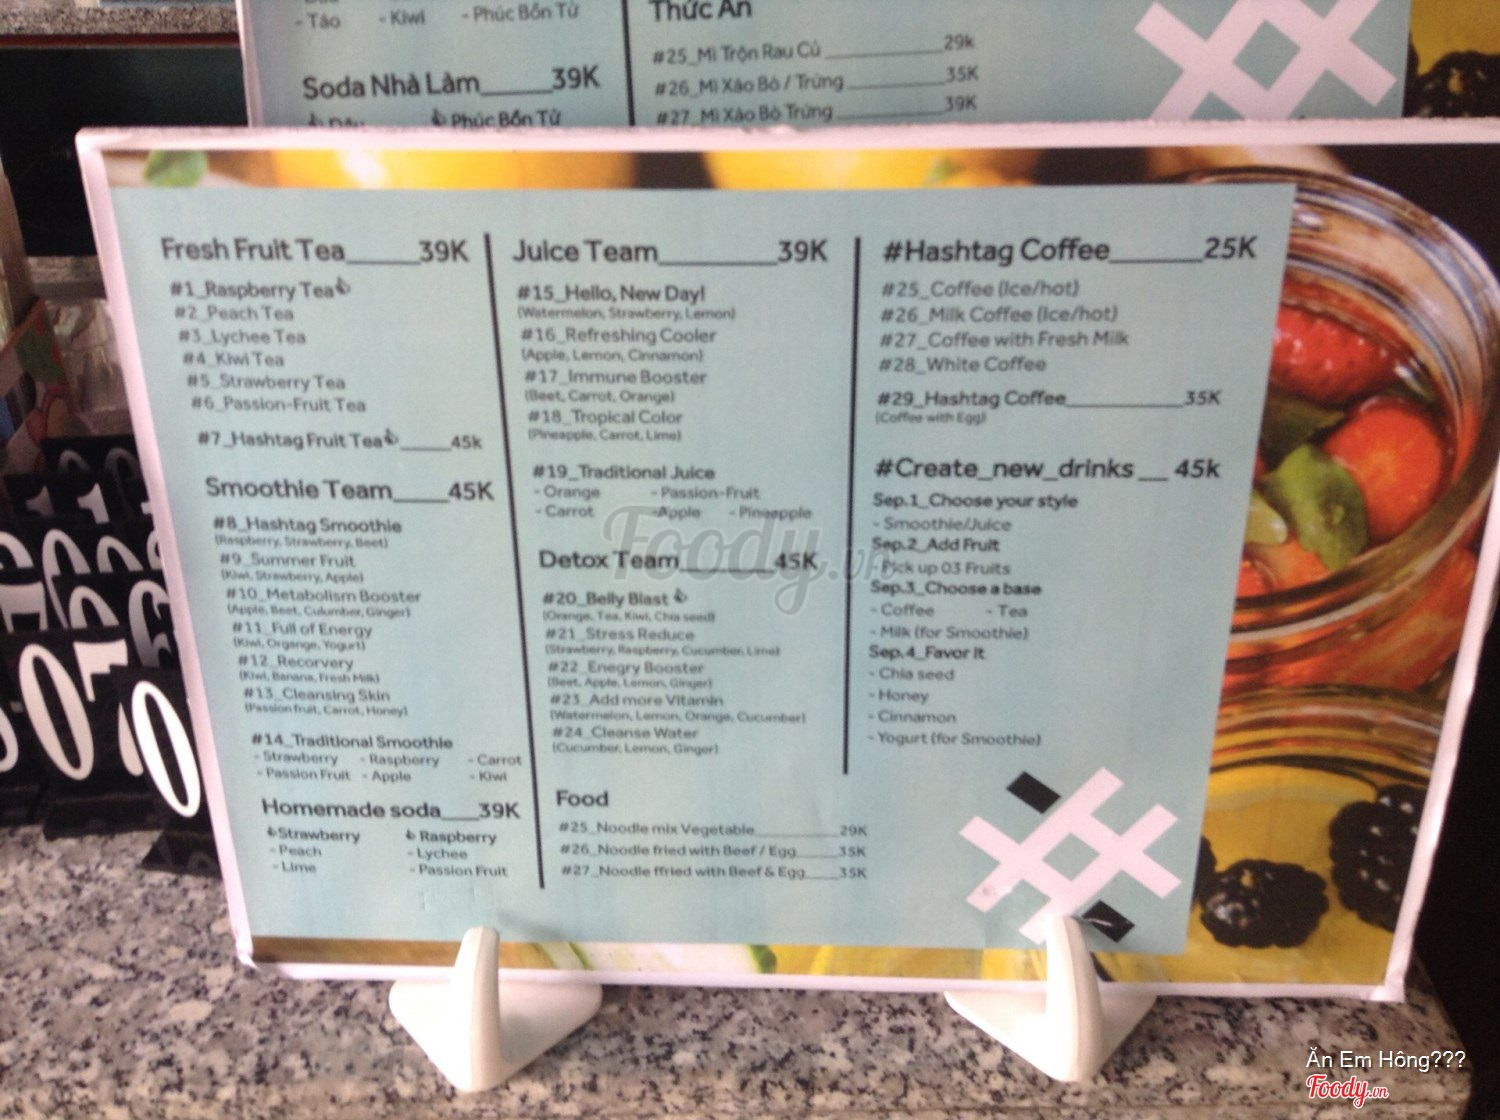 - Táo - Kiwi - Phúc Bồn Tử
Soda Nhà Làm_____39K
Phúc Bồn Tử
Thức Ăn
#25_Mì Trộn Rau Củ_____29k
#26_Mì Xào Bò / Trứng_____35K
#27_Mì Xào Bò Trứng_____39K
Fresh Fruit Tea_____39K
#1_Raspberry Tea
#2_Peach Tea
#3_Lychee Tea
#4_Kiwi Tea
#5_Strawberry Tea
#6_Passion-Fruit Tea
#7_Hashtag Fruit Tea_____45k
Smoothie Team_____45K
#8_Hashtag Smoothie
(Raspberry, Strawberry, Beet)
#9_Summer Fruit
(Kiwi, Strawberry, Apple)
#10_Metabolism Booster
(Apple, Beet, Culumber, Ginger)
#11_Full of Energy
(Kiwi, Organge, Yogurt)
#12_Recorvery
(Kiwi, Banana, Fresh Milk)
#13_Cleansing Skin
(Passion fruit, Carrot, Honey)
#14_Traditional Smoothie
- Strawberry - Raspberry - Carrot
- Passion Fruit - Apple - Kiwi
Homemade soda___39K
Strawberry Raspberry
- Peach - Lychee
- Lime - Passion Fruit
Juice Team________39K
#15_Hello, New Day!
(Watermelon, Strawberry, Lemon)
#16_Refreshing Cooler
(Apple, Lemon, Cinnamon)
#17_Immune Booster
(Beet, Carrot, Orange)
#18_Tropical Color
(Pineapple, Carrot, Lime)
#19_Traditional Juice
- Orange - Passion-Fruit
- Carrot -Apple - Pineapple
Detox Team_______45K
#20_Belly Blast
(Orange, Tea, Kiwi, Chia seed)
#21_Stress Reduce
(Strawberry, Raspberry, Cucumber, Lime)
#22_Enegry Booster
(Beet, Apple, Lemon, Ginger)
#23_Add more Vitamin
(Watermelon, Lemon, Orange, Cucumber)
#24_Cleanse Water
(Cucumber, Lemon, Ginger)
Food
#25_Noodle mix Vegetable__________29K
#26_Noodle fried with Beef / Egg_____35K
#27_Noodle ffried with Beef & Egg____35K
#Hashtag Coffee______25K
#25_Coffee (Ice/hot)
#26_Milk Coffee (Ice/hot)
#27_Coffee with Fresh Milk
#28_White Coffee
#29_Hashtag Coffee___________35K
(Coffee with Egg)
#Create_new_drinks __ 45k
Sep.1_Choose your style
- Smoothie/Juice
Sep.2_Add Fruit
- Pick up 03 Fruits
Sep.3_Choose a base
- Coffee - Tea
- Milk (for Smoothie)
Sep.4_Favor it
- Chia seed
- Honey
- Cinnamon
- Yogurt (for Smoothie)
Foody.vn
Ăn Em Hông???
Foody.vn